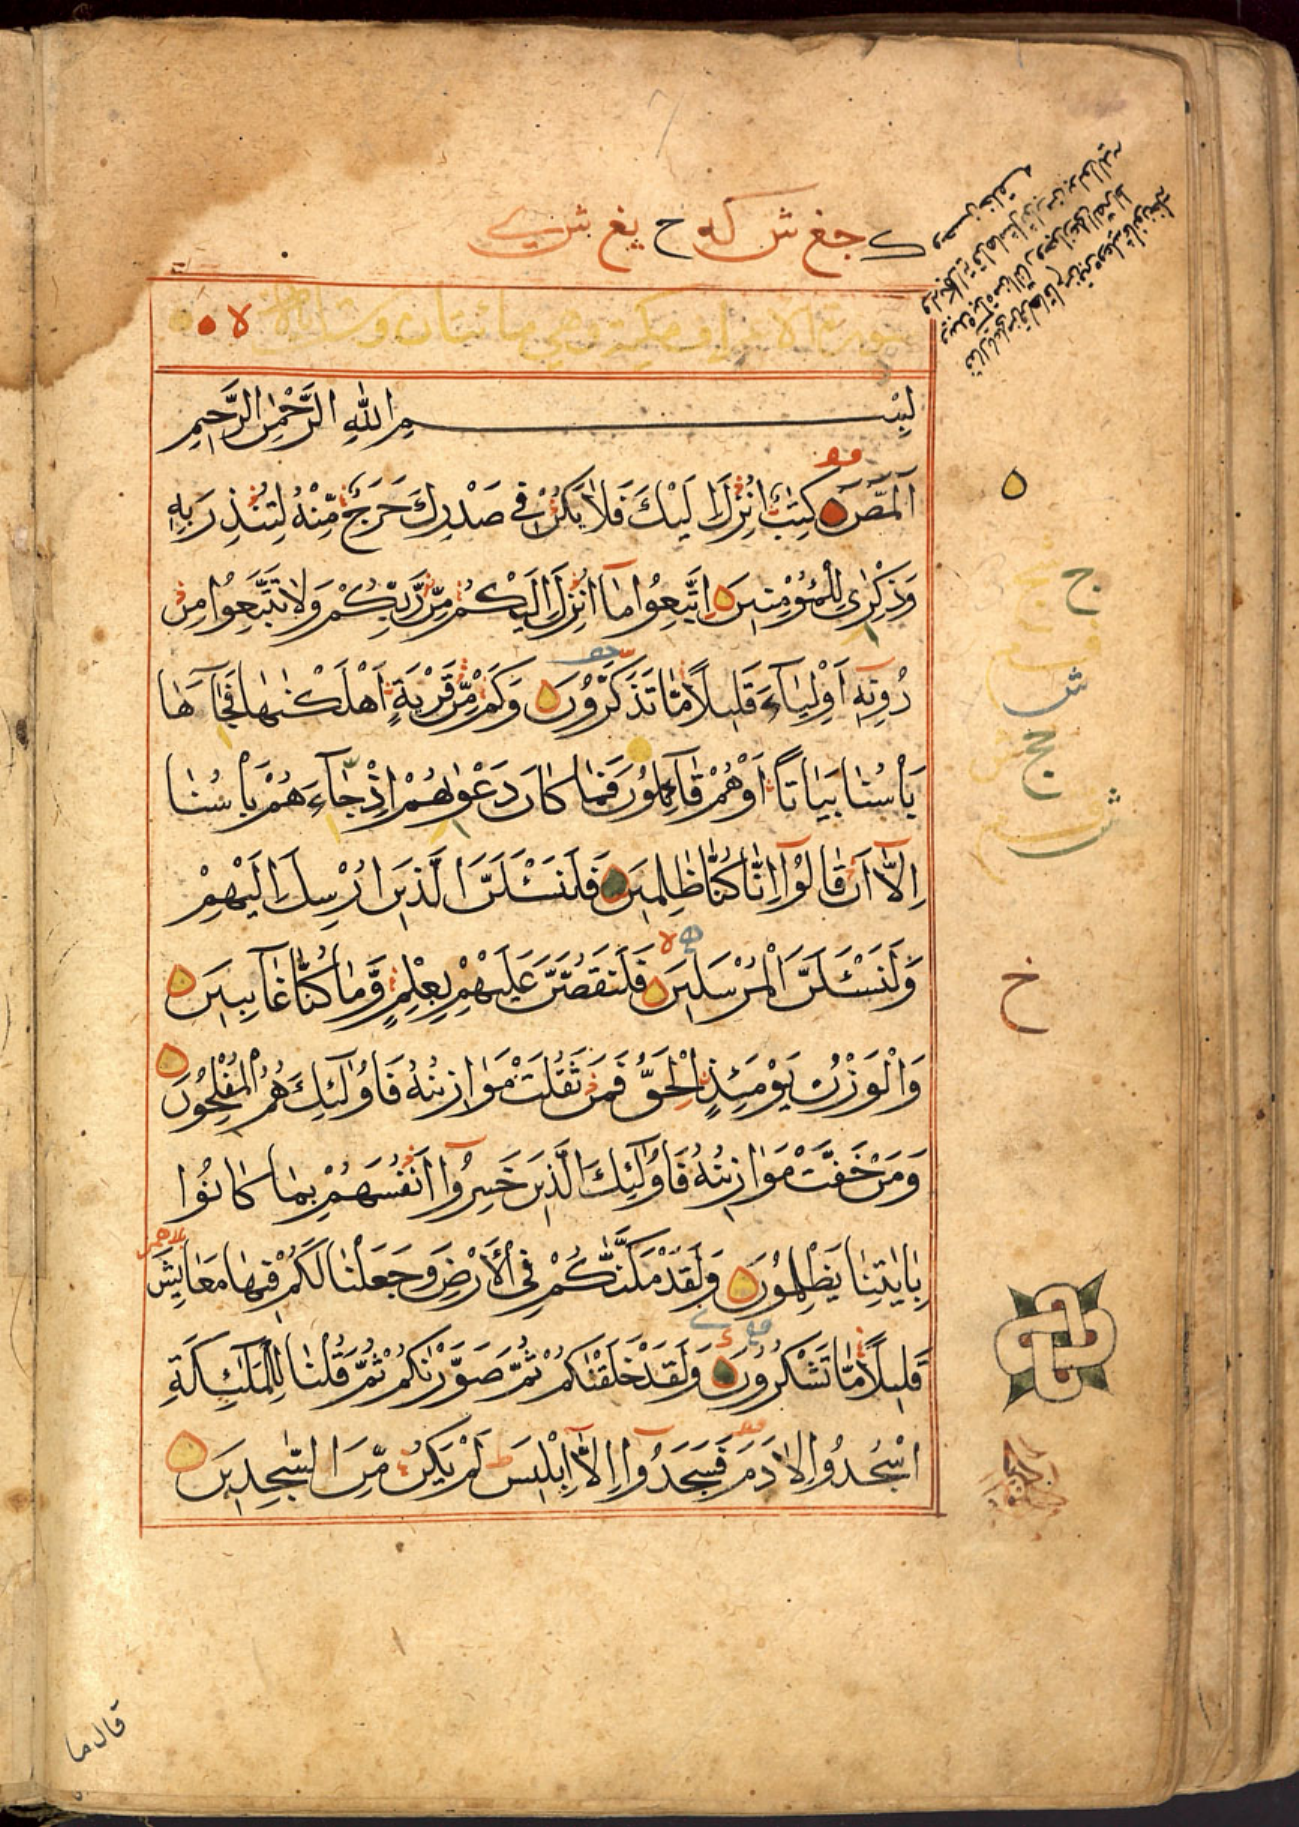 سورة الاعراف مكية وهي مائتان وست
لا
بِسْمِ اللّٰهِ الرَّحْمٰنِ الرَّحِيمِ
الٓمّٓصٓ كِتٰبٌ اُنْزِلَ اِلَيْكَ فَلَا يَكُنْ فِي صَدْرِكَ حَرَجٌ مِّنْهُ لِتُنْذِرَ بِهٖ
وَذِكْرٰى لِلْمُؤْمِنِينَ اِتَّبِعُوا مَآ اُنْزِلَ اِلَيْكُمْ مِّنْ رَّبِّكُمْ وَلَا تَتَّبِعُوا مِنْ
دُونِهٖٓ اَوْلِيَآءَ قَلِيلًا مَّا تَذَكَّرُونَ وَكَمْ مِّنْ قَرْيَةٍ اَهْلَكْنٰهَا فَجَآءَهَا
بَأْسُنَا بَيَاتًا اَوْهُمْ قَآئِلُونَ فَمَا كَانَ دَعْوٰىهُمْ اِذْ جَآءَهُمْ بَأْسُنَا
اِلَّآ اَنْ قَالُوْٓا اِنَّا كُنَّا ظٰلِمِينَ فَلَنَسْئَلَنَّ الَّذِينَ اُرْسِلَ اِلَيْهِمْ
وَلَنَسْئَلَنَّ الْمُرْسَلِينَ فَلَنَقُصَّنَّ عَلَيْهِمْ بِعِلْمٍ وَّمَا كُنَّا غَآئِبِينَ
وَالْوَزْنُ يَوْمَئِذٍ الْحَقُّ فَمَنْ ثَقُلَتْ مَوَازِينُهُ فَاُولٰٓئِكَ هُمُ الْمُفْلِحُونَ
وَمَنْ خَفَّتْ مَوَازِينُهُ فَاُولٰٓئِكَ الَّذِينَ خَسِرُوْٓا اَنْفُسَهُمْ بِمَا كَانُوا
بِاٰيٰتِنَا يَظْلِمُونَ وَلَقَدْ مَكَّنّٰكُمْ فِي الْاَرْضِ وَجَعَلْنَا لَكُمْ فِيهَا مَعَايِشَ
قَلِيلًا مَّا تَشْكُرُونَ وَلَقَدْ خَلَقْنٰكُمْ ثُمَّ صَوَّرْنٰكُمْ ثُمَّ قُلْنَا لِلْمَلٰٓئِكَةِ
اسْجُدُوا لِاٰدَمَ فَسَجَدُوْٓا اِلَّآ اِبْلِيسَ لَمْ يَكُنْ مِّنَ السّٰجِدِينَ
ج
ش
خ
قال ما